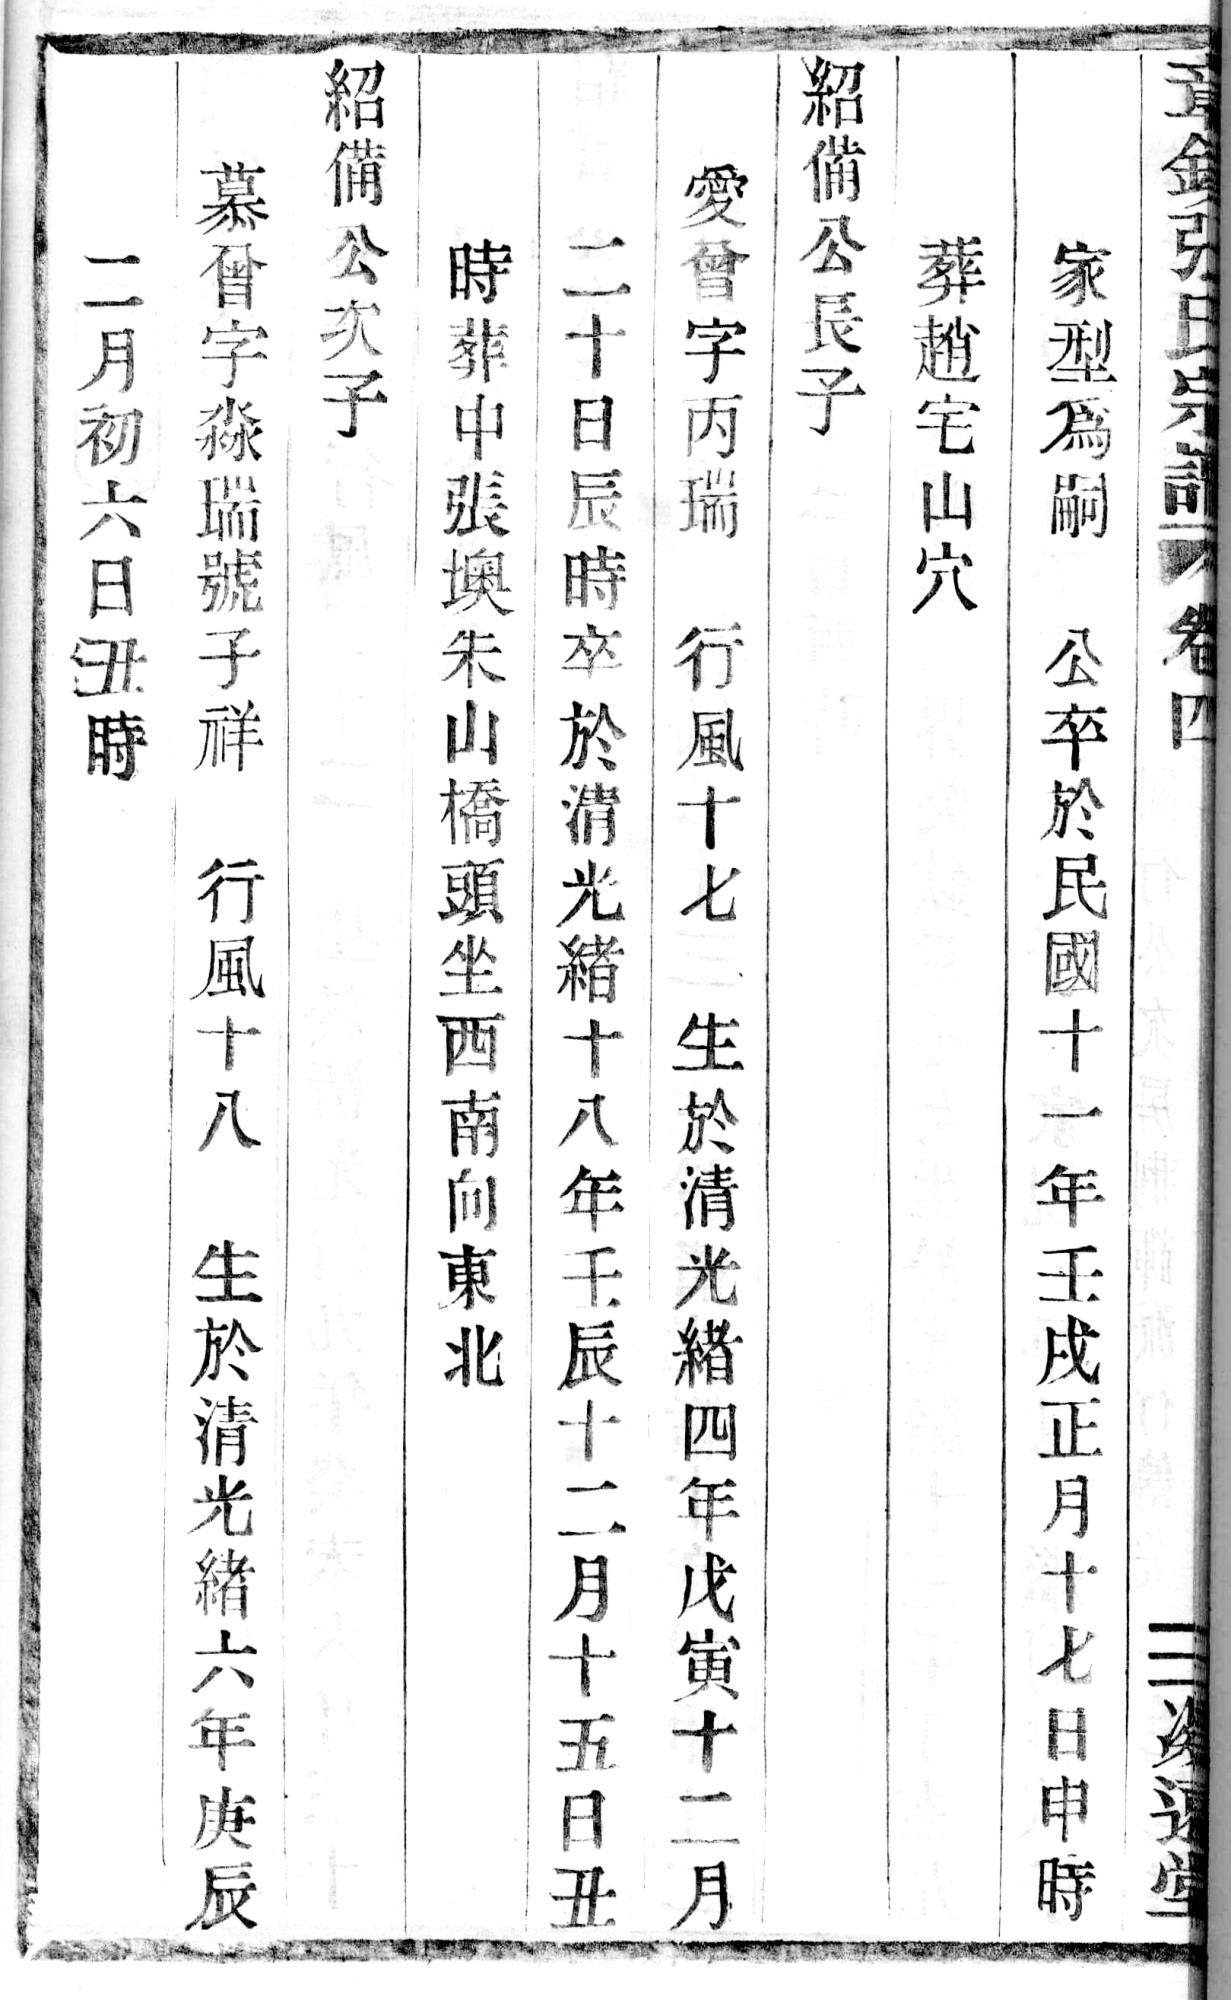 章鎮張氏宗譜 卷四 三 遠堂
家型爲嗣 公卒於民國十一年壬戌正月十七日申時
葬趙宅山穴
紹備公長子
愛曾字丙瑞 行風十七 生於清光緒四年戊寅十二月
二十日辰時卒於清光緒十八年壬辰十二月十五日丑
時葬中張墺朱山橋頭坐西南向東北
紹備公次子
慕曾字淼瑞號子祥 行風十八 生於清光緒六年庚辰
二月初六日丑時